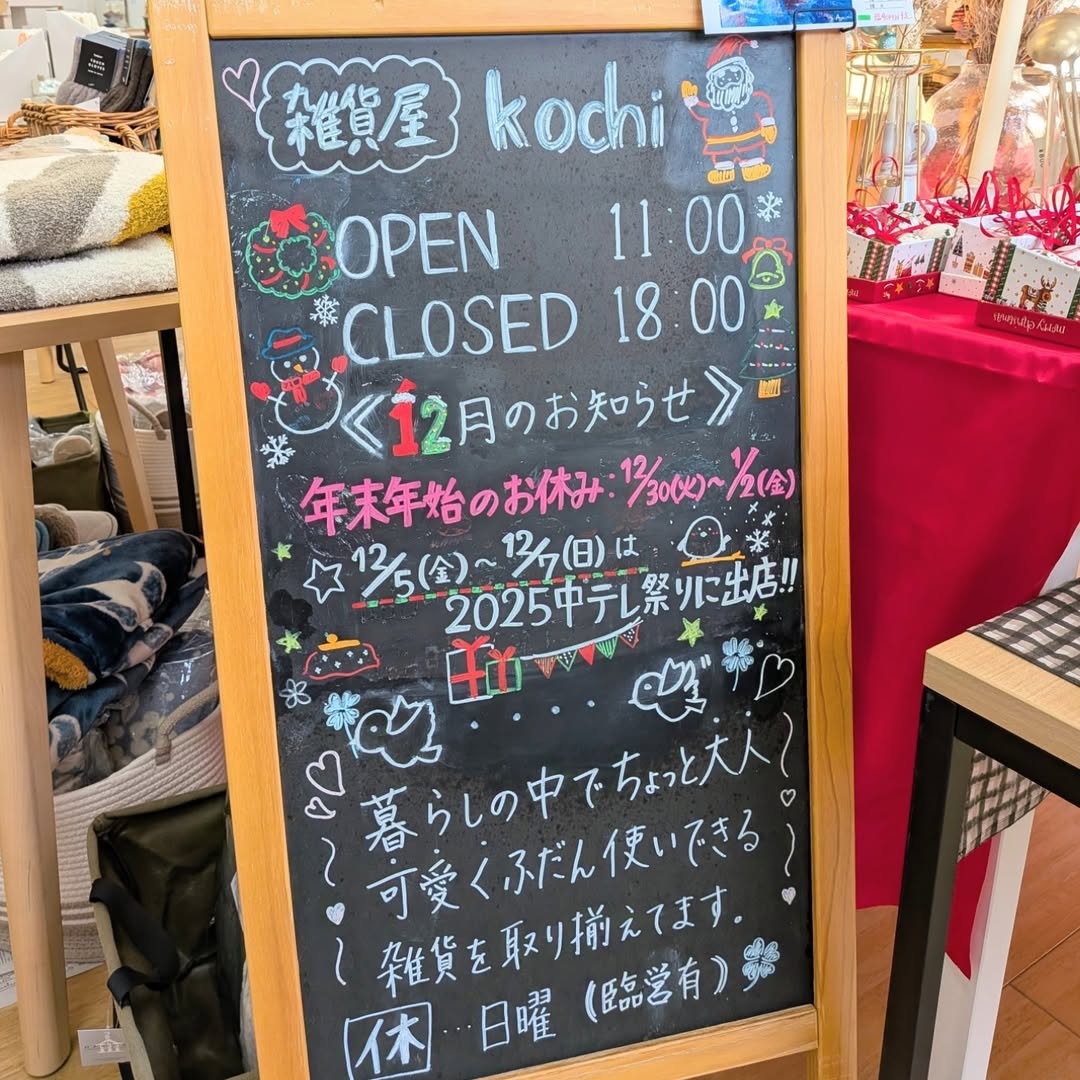 雑貨屋 kochi
OPEN 11:00
CLOSED 18:00
《12月のお知らせ》
年末年始のお休み:12/30(火)~1/2(金)
12/5(金)~12/7(日)は
2025中テレ祭りに出店!!
暮らしの中でちょっと大人
可愛くふだん使いできる
雑貨を取り揃えてます。
休…日曜(臨営有)
merry christmas